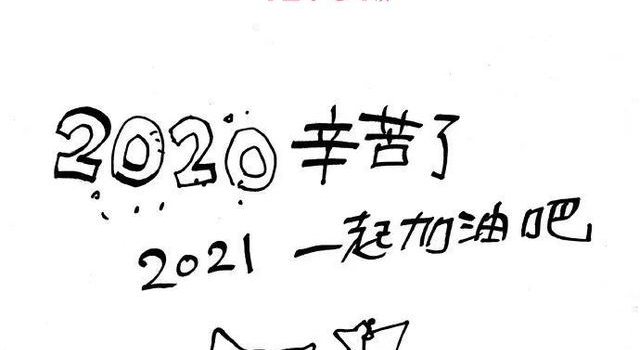 2020 辛苦了
2021 一起加油吧